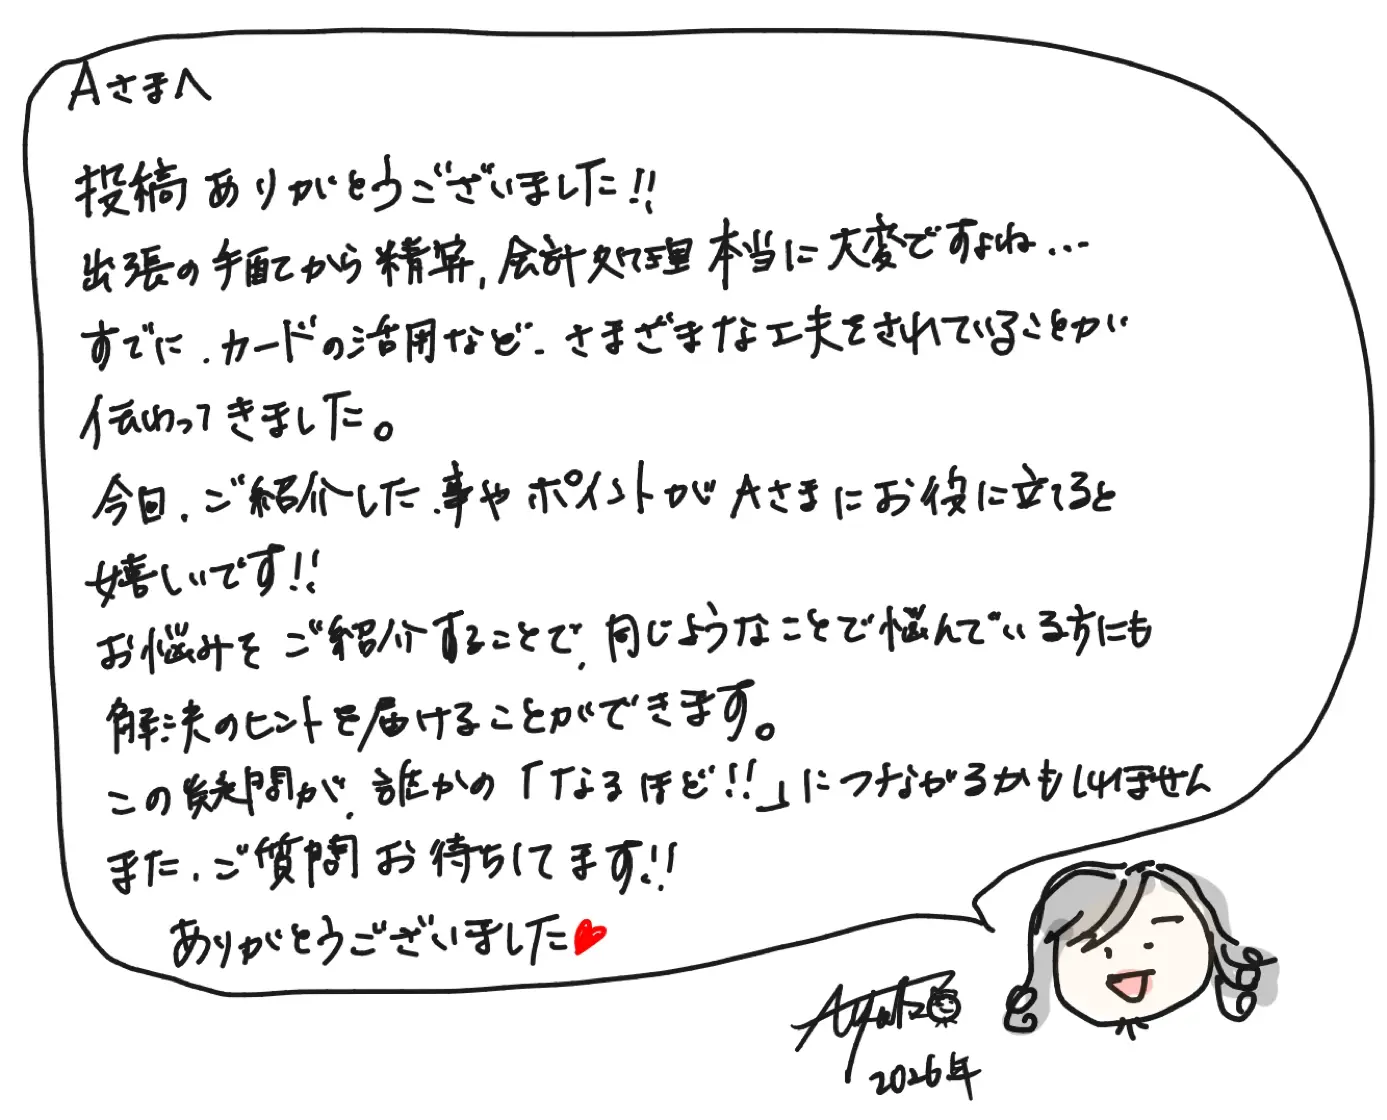 Aさまへ
投稿ありがとうございました!!
出張の手配てから精算、会計処理本当に大変ですよね...
すでに、カードの活用など、さまざまな工夫をされていることが
伝わってきました。
今日、ご紹介した事やポイントがAさまにお役に立てると
嬉しいです!!
お悩みをご紹介することで、同じようなことで悩んでいる方にも
解決のヒントを届けることができます。
この疑問が、誰かの「なるほど!!」につながるかもしれません
また、ご質問お待ちしてます!!
ありがとうございました
2026年